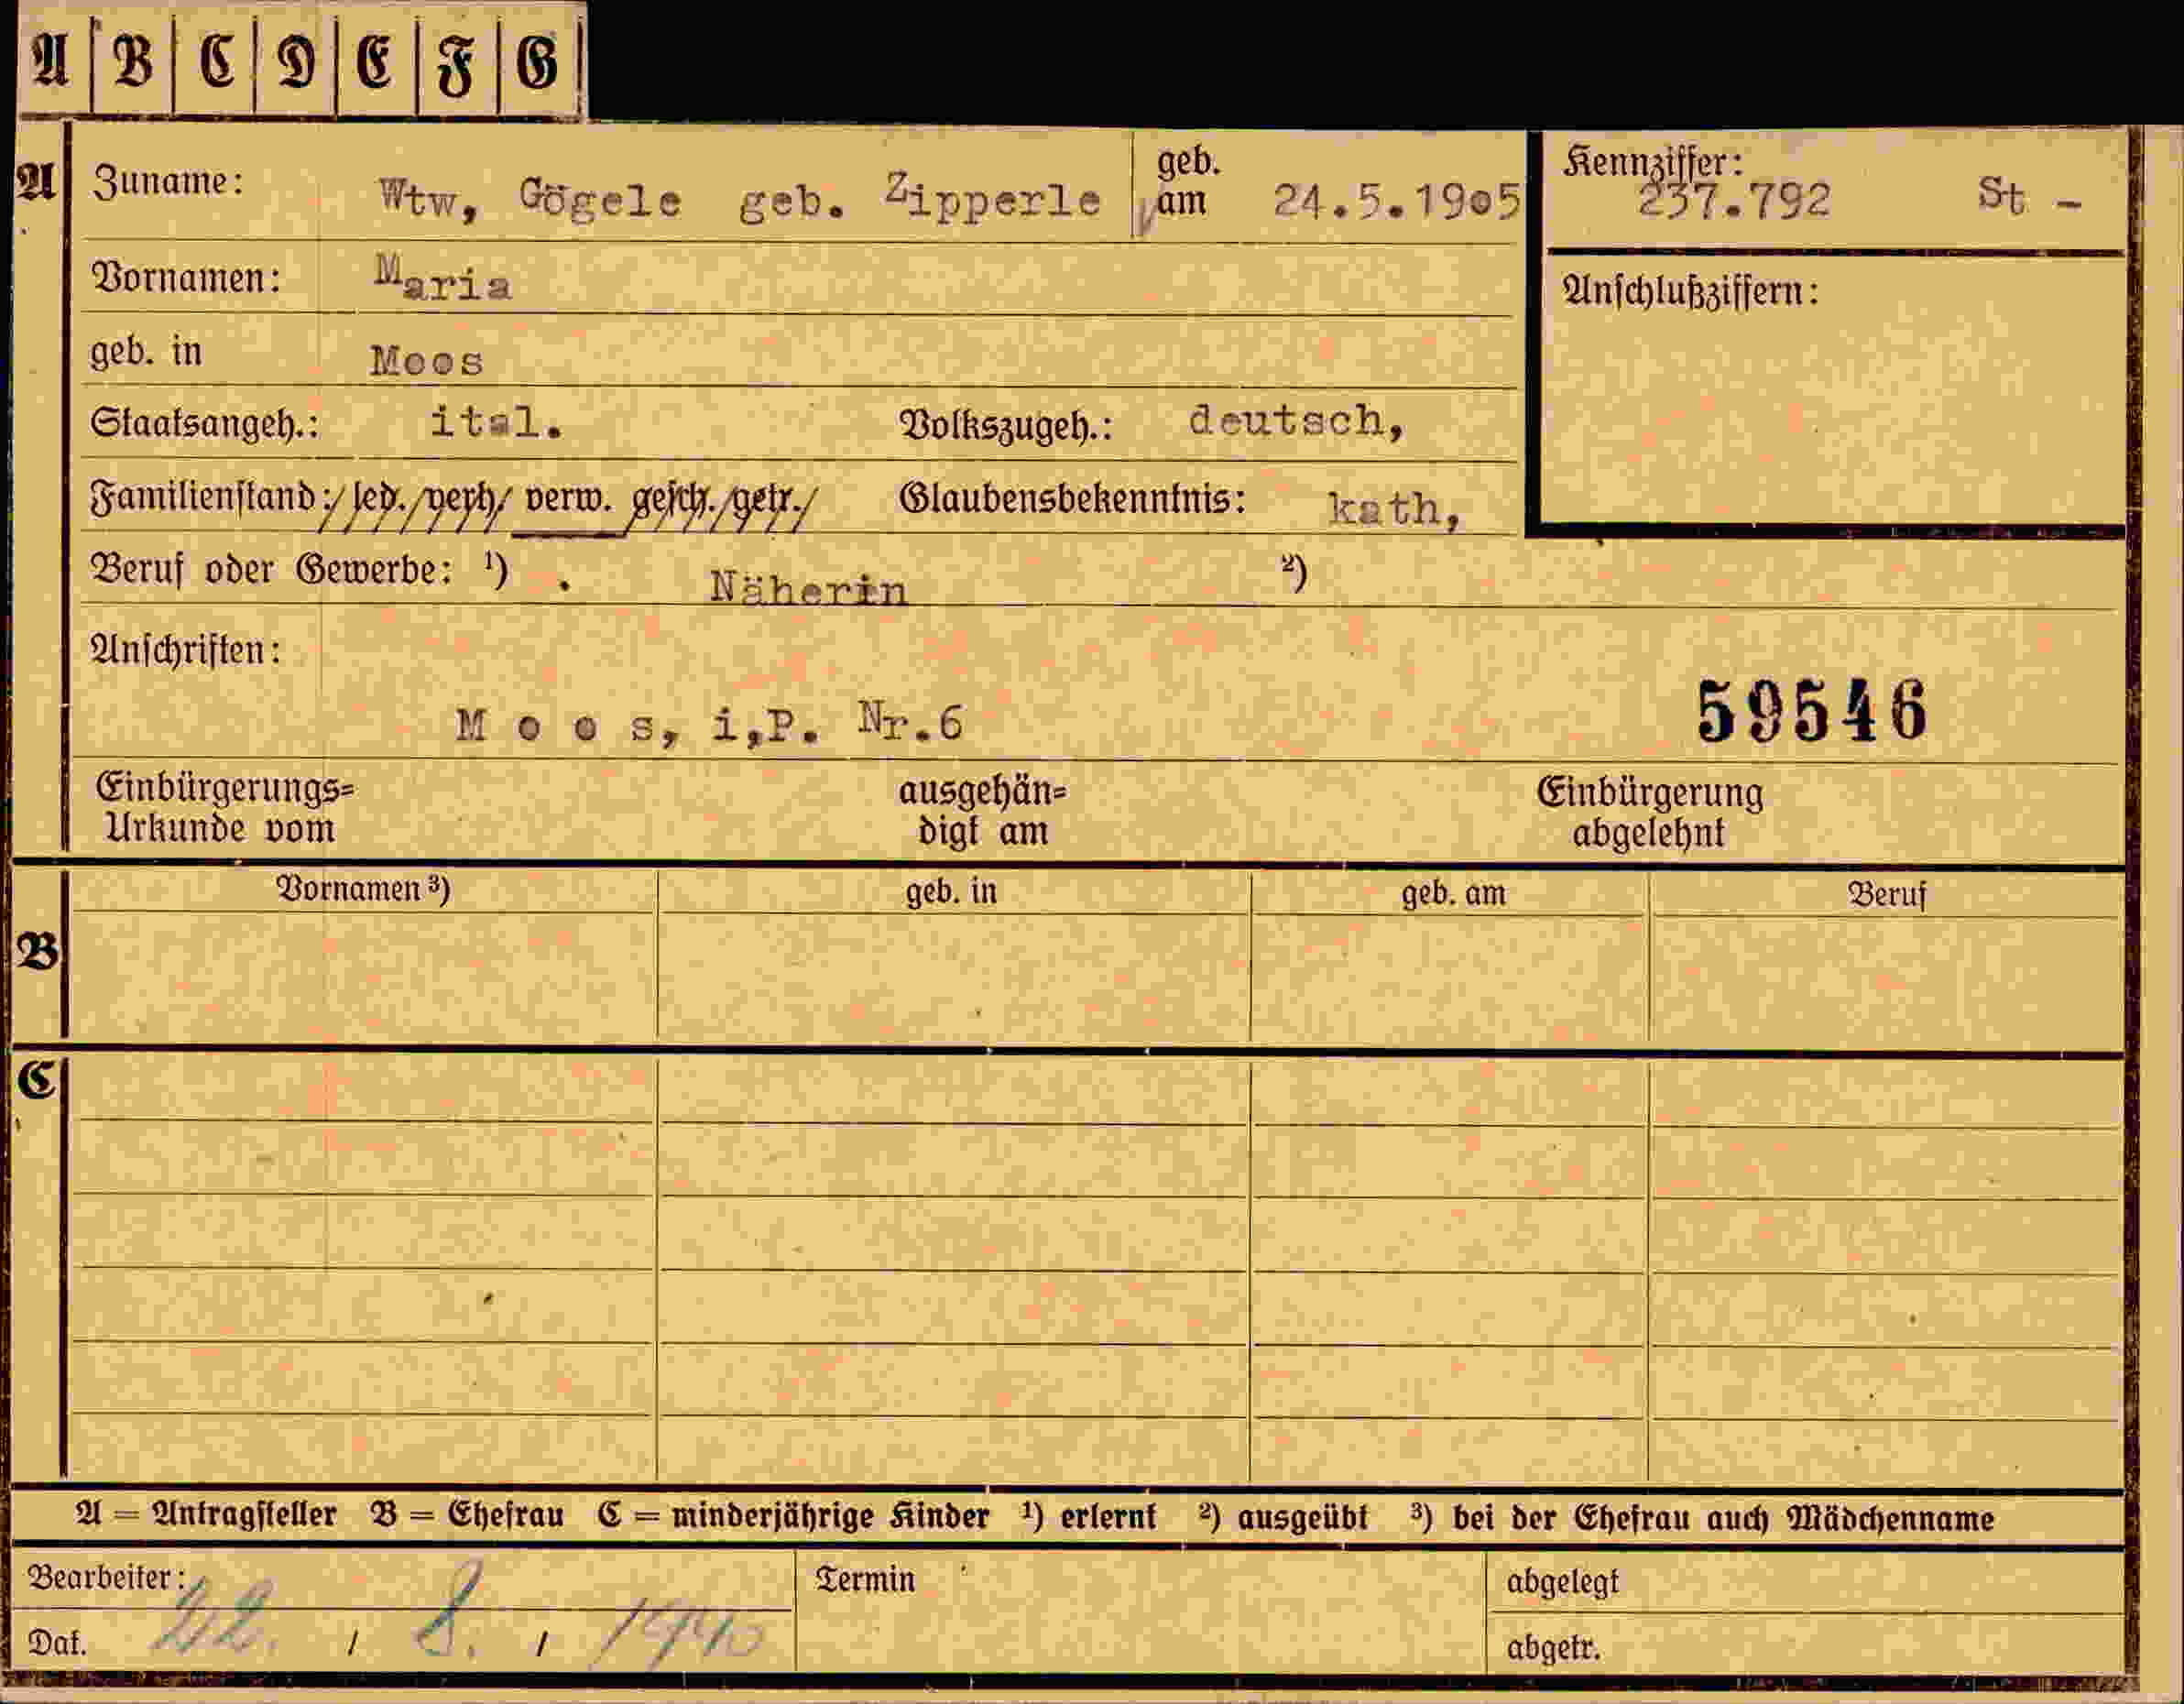 A B C D E F G
A Zuname: Wtw, Gögele geb. Zipperle geb. am 24.5.1905 Kennziffer: 237.792 St -
Vornamen: Maria
Anschlußziffern:
geb. in Moos
Staatsangeh.: ital. Volkszugeh.: deutsch,
Familienstand: led. verh. verw. gesch. getr. Glaubensbekenntnis: kath,
Beruf oder Gewerbe: ¹) . Näherin ²)
Anschriften:
M o o s, i,P. Nr.6 59546
Einbürgerungs= ausgehän= Einbürgerung
Urkunde vom digt am abgelehnt
Vornamen ³) geb. in geb. am Beruf
B
C
A = Antragsteller B = Ehefrau C = minderjährige Kinder ¹) erlernt ²) ausgeübt ³) bei der Ehefrau auch Mädchenname
Bearbeiter: Termin abgelegt
Dat. 22. / 8. / 1940 abgetr.